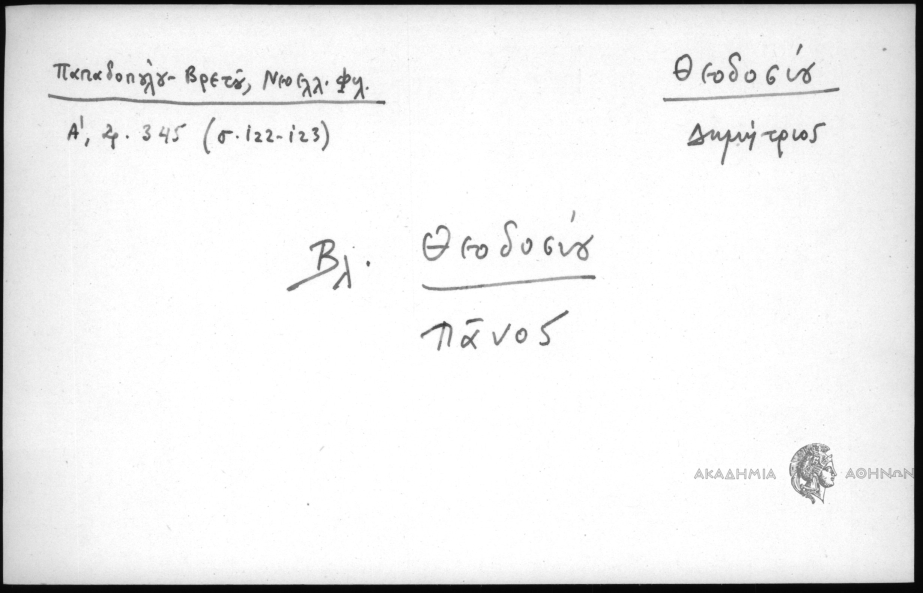 Παπαδοπούλου-Βρετοῦ, Νεοελλ. Φιλ.
Α', ἀρ. 345 (σ. 122-123)
Θεοδοσίου
Δημήτριος
Βλ. Θεοδοσίου
Πᾶνος
ΑΚΑΔΗΜΙΑ ΑΘΗΝΩΝ